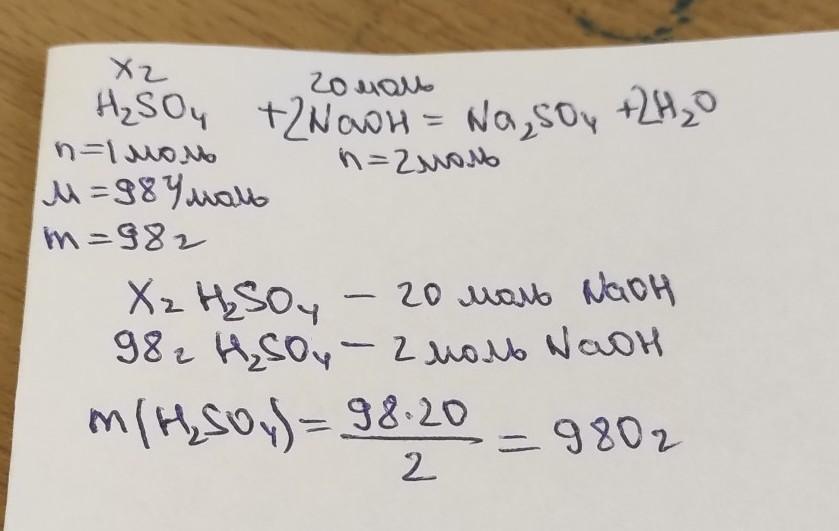 x г 20 моль
H₂SO₄ + 2NaOH = Na₂SO₄ + 2H₂O
n = 1 моль n = 2 моль
M = 98 г/моль
m = 98 г
X г H₂SO₄ – 20 моль NaOH
98 г H₂SO₄ – 2 моль NaOH
m(H₂SO₄) = 98·20 / 2 = 980 г